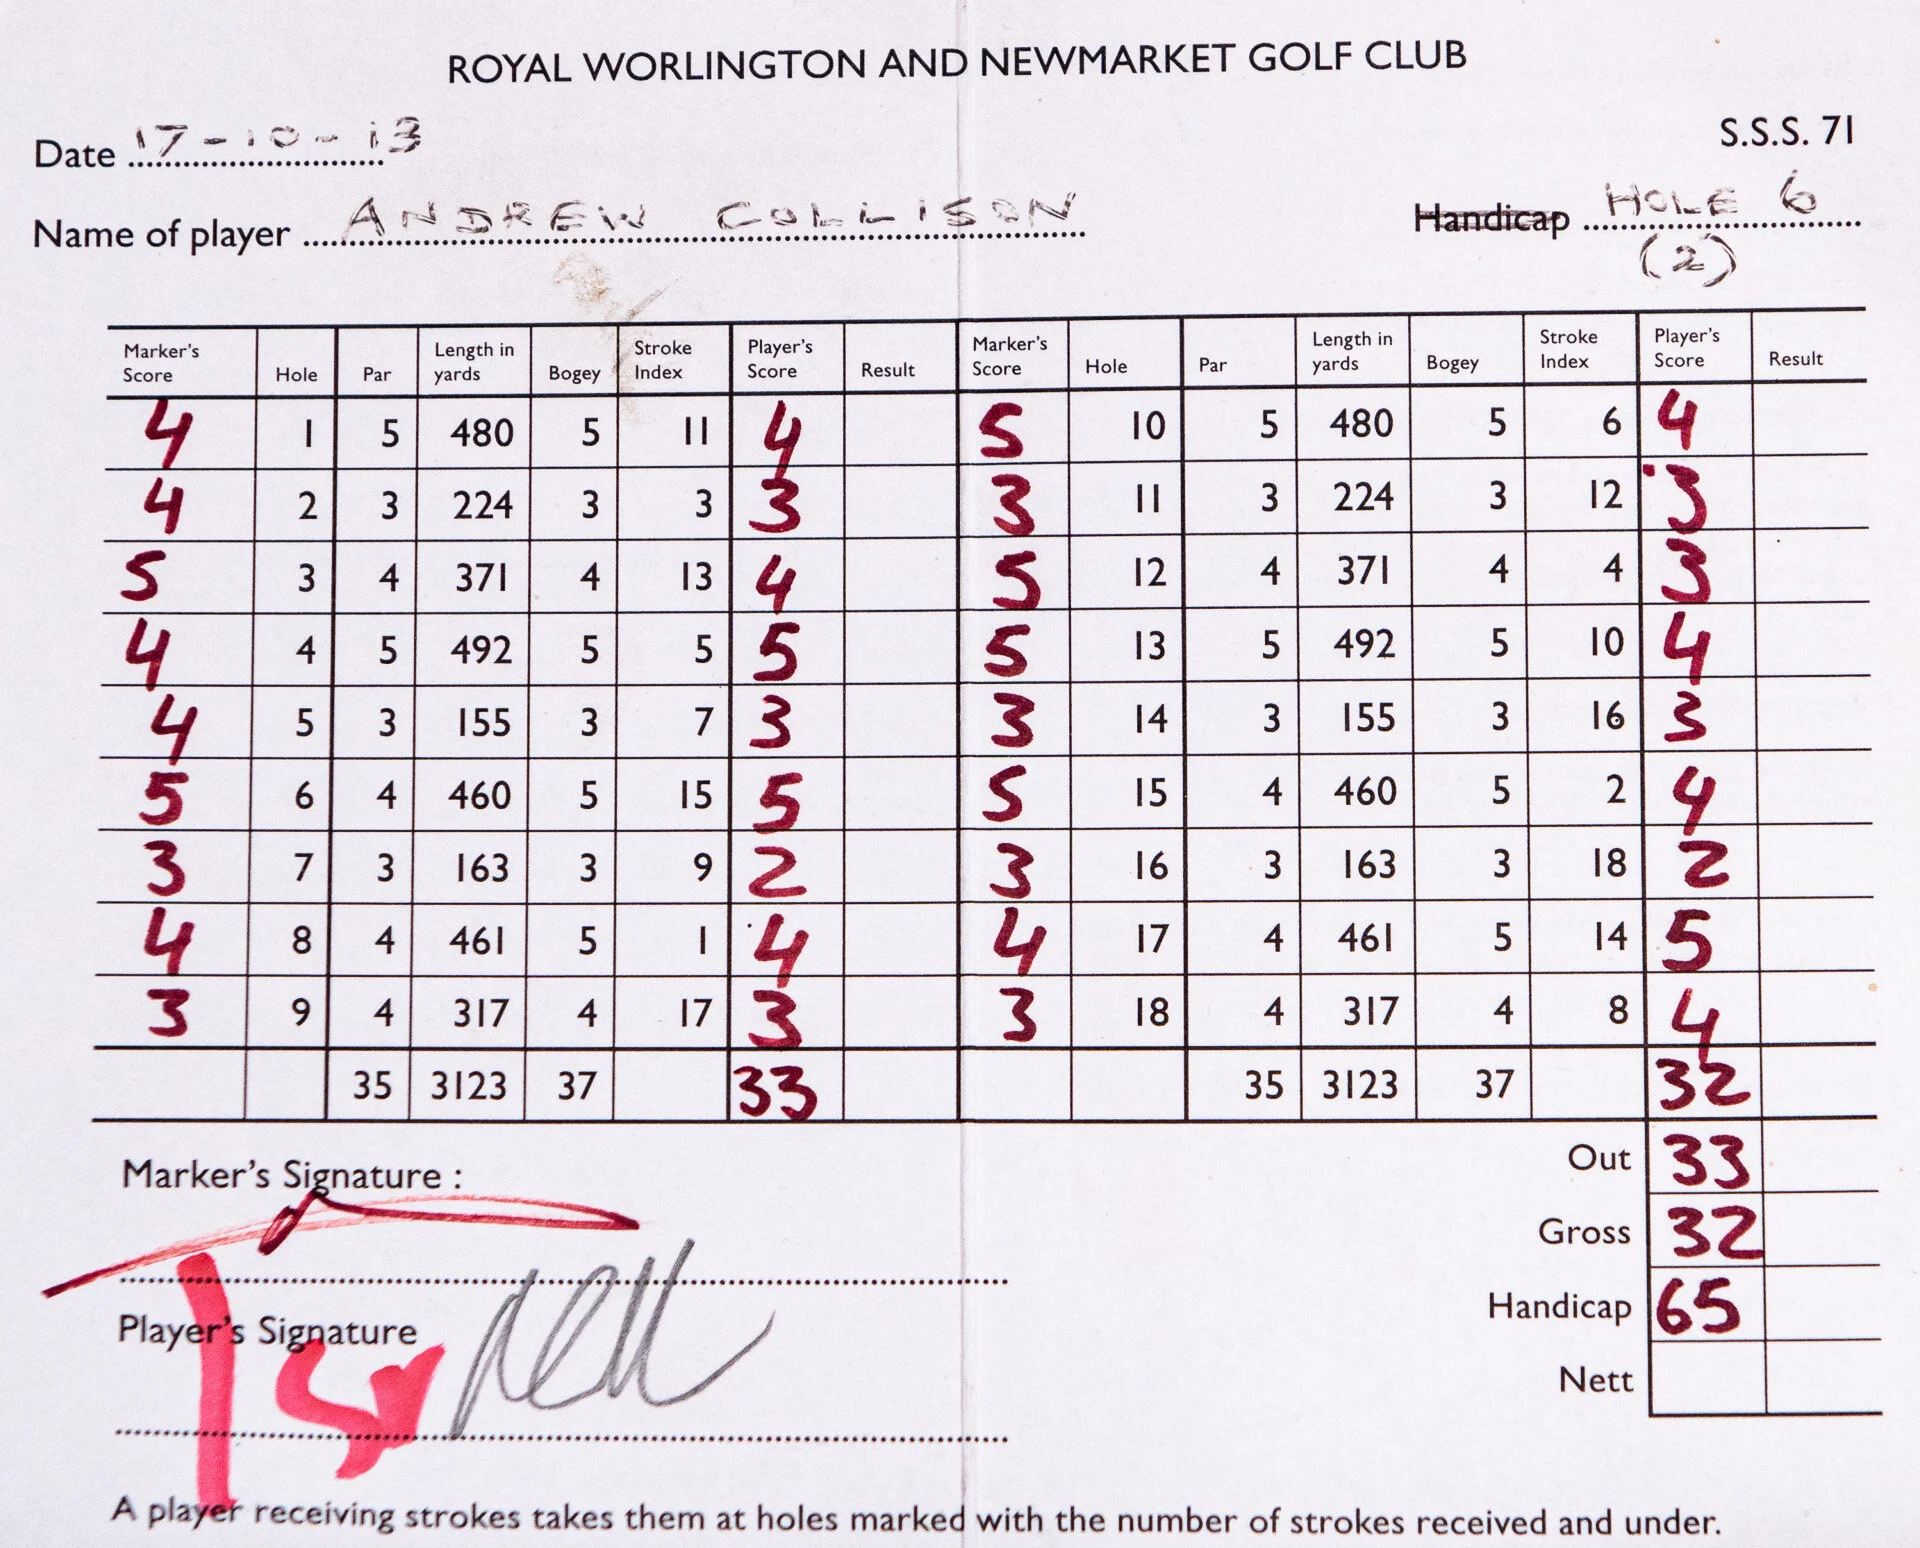 ROYAL WORLINGTON AND NEWMARKET GOLF CLUB
Date 17-10-13 S.S.S. 71
Name of player ANDREW COLLISON Handicap HOLE 6
(2)
Marker's Score Hole Par Length in yards Bogey Stroke Index Player's Score Result Marker's Score Hole Par Length in yards Bogey Stroke Index Player's Score Result
4 1 5 480 5 11 4 5 10 5 480 5 6 4
4 2 3 224 3 3 3 3 11 3 224 3 12 3
5 3 4 371 4 13 4 5 12 4 371 4 4 3
4 4 5 492 5 5 5 5 13 5 492 5 10 4
4 5 3 155 3 7 3 3 14 3 155 3 16 3
5 6 4 460 5 15 5 5 15 4 460 5 2 4
3 7 3 163 3 9 2 3 16 3 163 3 18 2
4 8 4 461 5 1 4 4 17 4 461 5 14 5
3 9 4 317 4 17 3 3 18 4 317 4 8 4
35 3123 37 33 35 3123 37 32
Marker's Signature : Out 33
Gross 32
Player's Signature Handicap 65
1st Nett
A player receiving strokes takes them at holes marked with the number of strokes received and under.